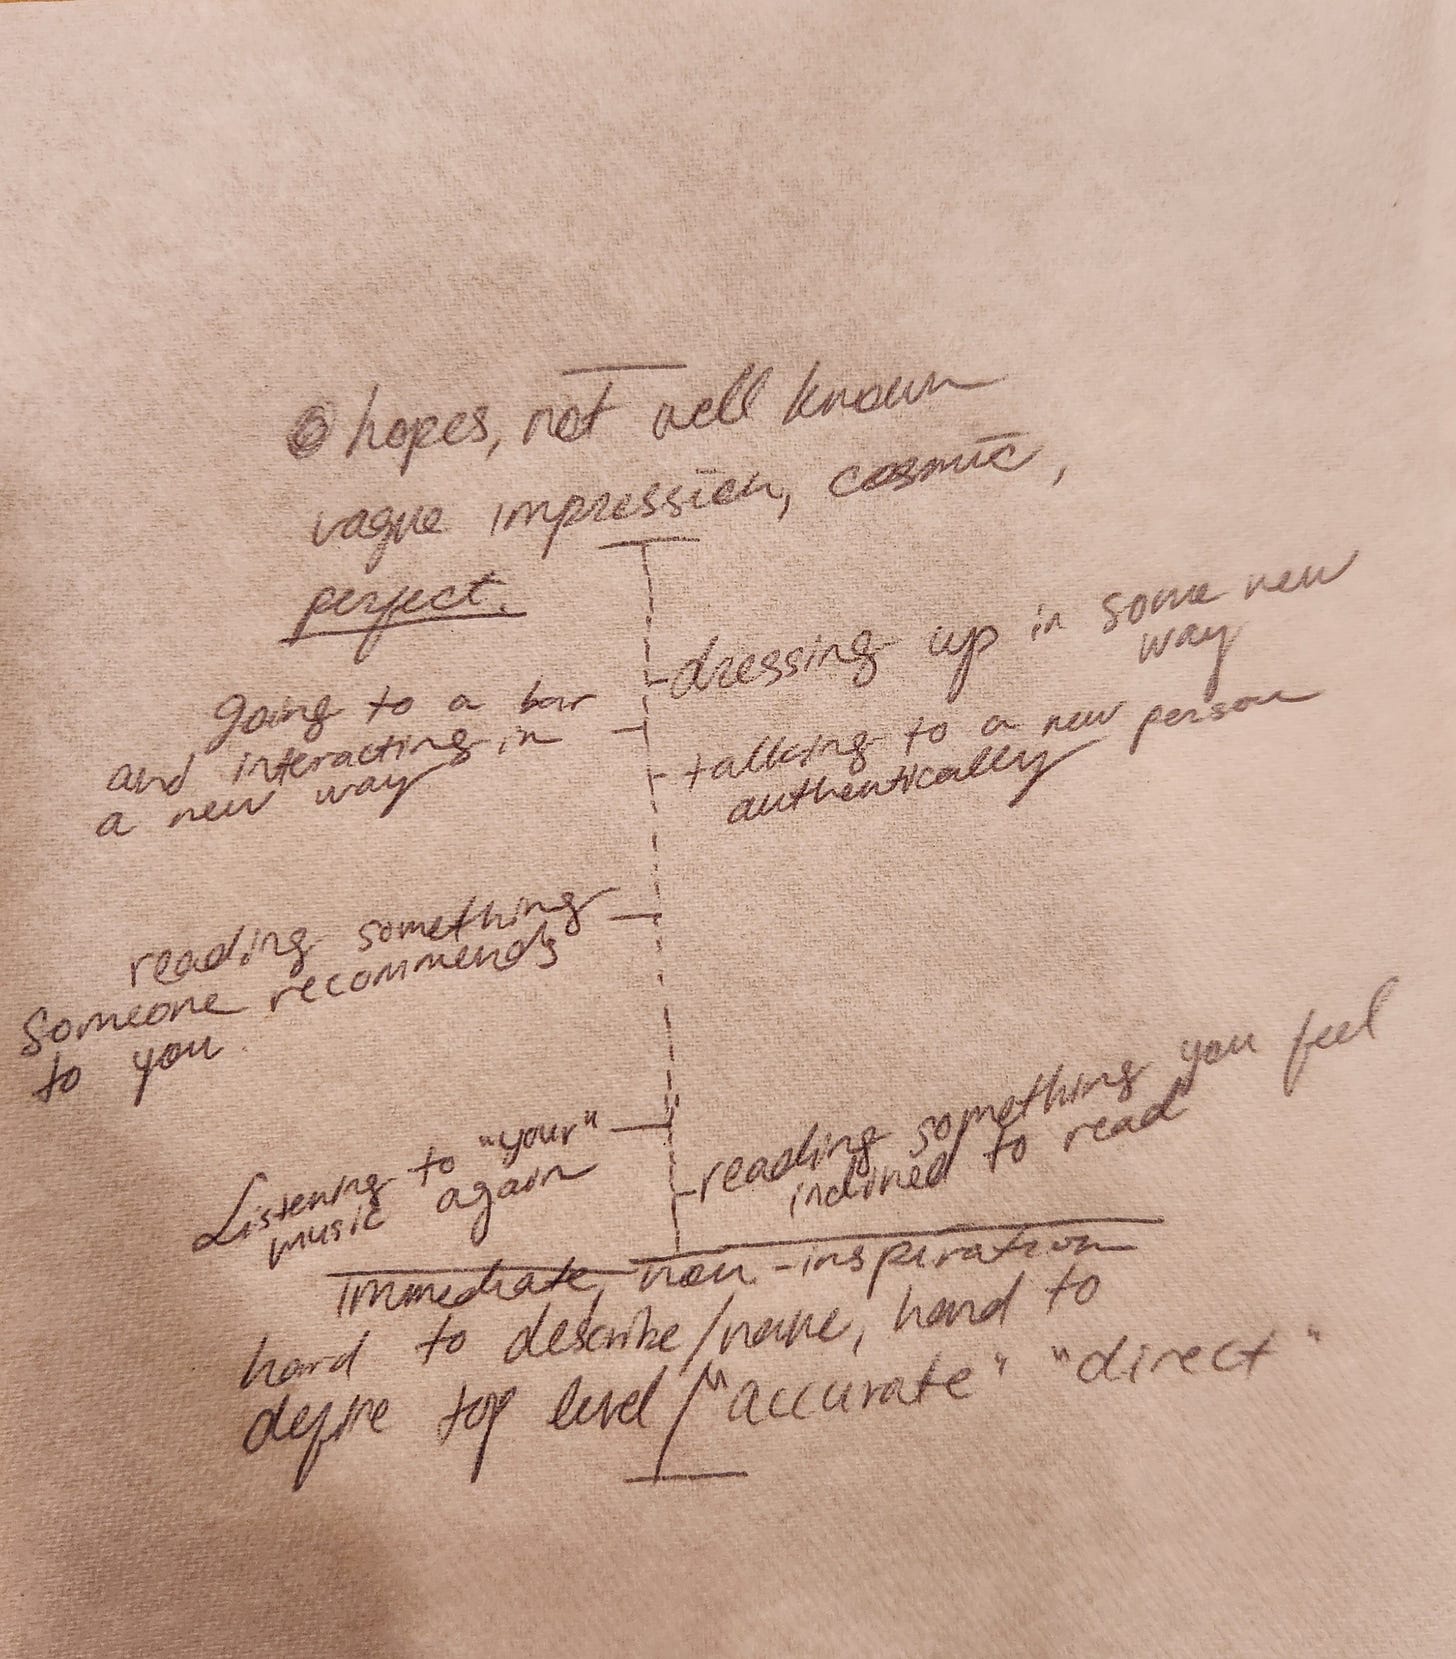 hopes, not well known
vague impression, cosmic,
perfect.
dressing up in some new
way
going to a bar
and interacting in
a new way
talking to a new person
authentically
reading something
someone recommends
to you
Listening to "your"
music again
reading something you feel
inclined to read
Immediate, non-inspiration
hard to describe/name, hard to
define top level/"accurate" "direct"